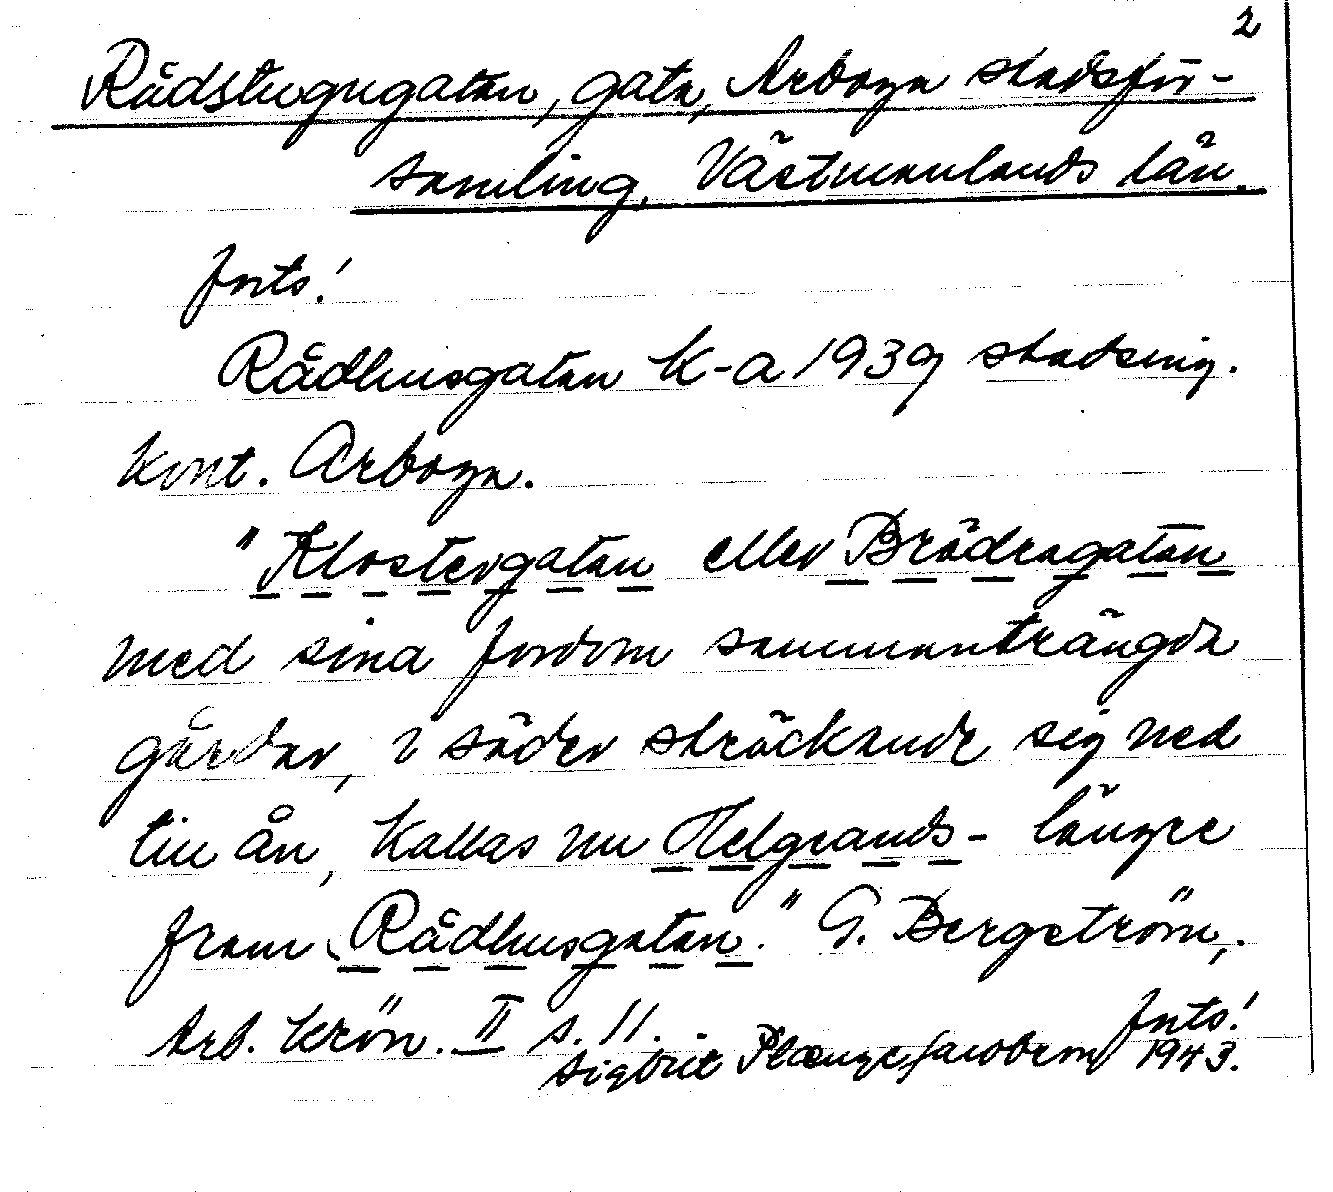 2
Rådstugugatan, gata, Arboga stadsför-
samling, Västmanlands län.
forts!
Rådhusgatan K-a 1939 stadsing.
kont. Arboga.
"Klostergatan eller Brödragatan
med sina fordom sammanträngda
gårdar, i söder sträckande sig ned
till ån, kallas nu Helgrands- längre
fram Rådhusgatan." G. Bergström,
Arb. krön. II s. 11. forts!
Sigbrit Plænge Jacobson 1943.